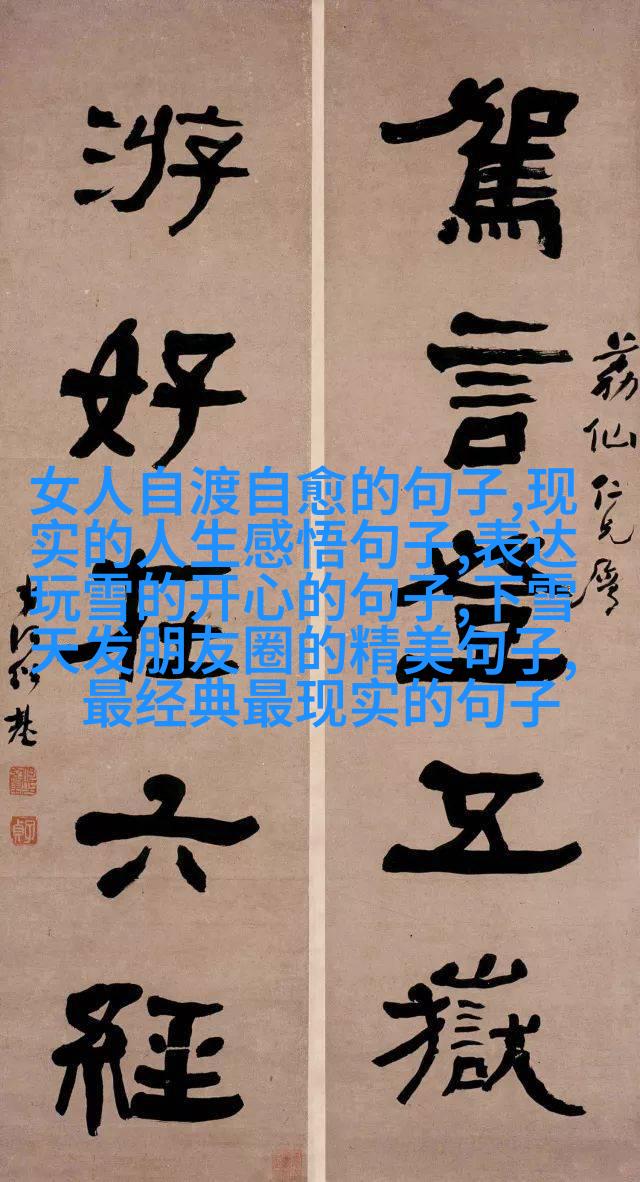 駕言登五嶽
荔仙仁兄屬
游好在六經
何紹基
子貞
女人自渡自愈的句子,现
实的人生感悟句子,表达
玩雪的开心的句子,下雪
天发朋友圈的精美句子,
最经典最现实的句子